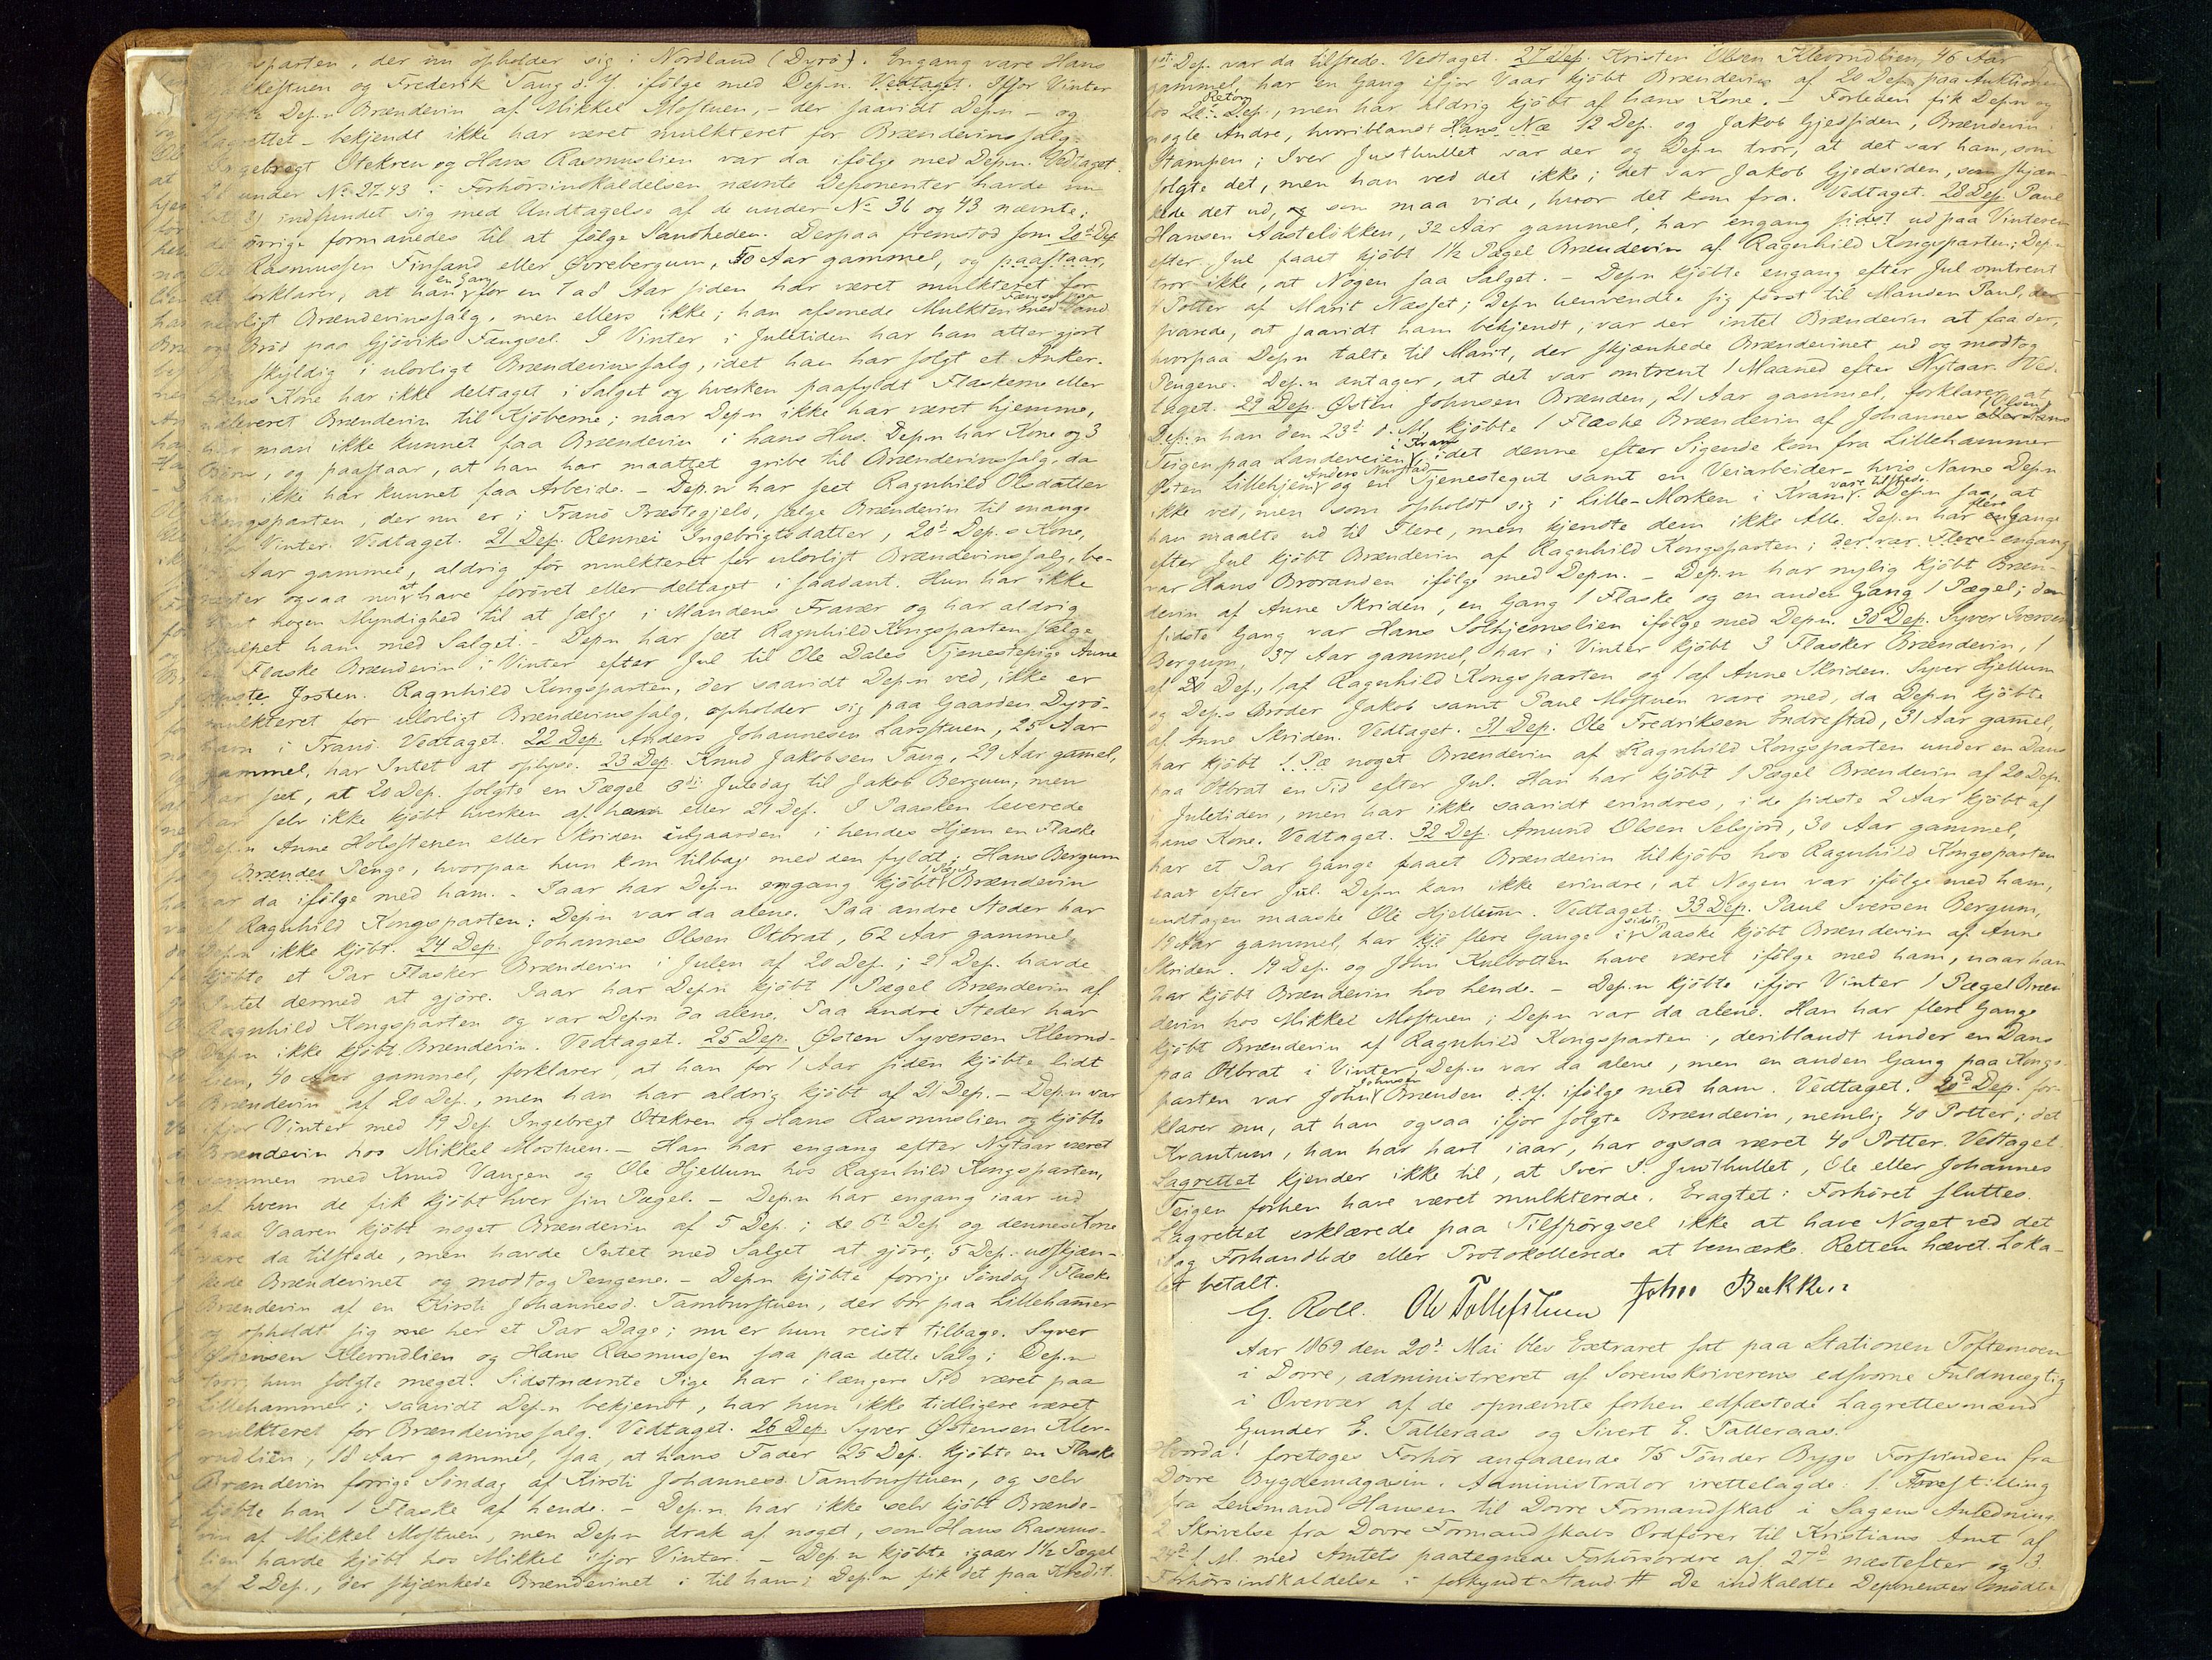 sparten, der nu opholder sig i Nordland (Dyrö). Engang vare Hans
kkestuen og Frederik Taug d. Y. ifölge med Dep.n. Vedtaget. Ifjor Vinter
kjöbte Dep.n Brændevin af Mikkel Mostuen, - der saavidt Dep.n - og
Lagrettet - bekjendt ikke har været mulkteret for Brændevinssalg.
Ingebregt Otekren og Hans Rasmuslien var da ifölge med Dep.n. Vedtaget.
De under No 27-43 i Forhörsindkaldelsen nævnte Deponenter havde nu
indfundet sig med Undtagelse af de under No 36 og 43 nævnte;
de övrige formanedes til at fölge Sandheden. Derpaa fremstod som 20de Dep.
Ole Rasmussen Finsand eller Övrebergum, 50 Aar gammel, og paastaar,
at forklarer, at han en Gang for en 7 a 8 Aar siden har været mulkteret for
ulovligt Brændevinssalg, men ellers ikke; han afsonede Mulkten med Fængsel paa Vand
og Bröd paa Gjöviks Fængsel. I Vinter i Juletiden har han atter gjort
sig skyldig i ulovligt Brændevinssalg, idet han har solgt et Anker.
Hans Kone har ikke deltaget i Salget og hverken paafyldt Flaskerne eller
udleveret Brændevin til Kjöberne; naar Dep.n ikke har været hjemme,
har man ikke kunnet faa Brændevin i hans Hus. Dep.n har Kone og 3
Börn, og paastaar, at han har maattet gribe til Brændevinssalg, da
han ikke har kunnet faa Arbeide. - Dep.n har seet Ragnhild Olsdatter
Kongsparten, der nu er i Tranö Præstegjeld, sælge Brændevin til mange
Vinter. Vedtaget. 21 Dep. Rennei Ingebrigtsdatter, 20de Dep.s Kone,
Aar gammel, aldrig för mulkteret for ulovligt Brændevinssalg, be-
nægter ogsaa nu at have forövet eller deltaget i saadant. Hun har ikke
havt nogen Myndighed til at sælge i Mandens Fravær og har aldrig
hjulpet ham med Salget. - Dep.n har seet Ragnhild Kongsparten sælge
en Flaske Brændevin i Vinter efter Jul til Ole Dales Tjenestepige Anne
Jösten. Ragnhild Kongsparten, der saavidt Dep.n ved, ikke er
mulkteret for ulovligt Brændevinssalg, opholder sig paa Gaarden Dyrö-
havn i Tranö. Vedtaget. 22 Dep. Anders Johannesen Larsstuen, 25 Aar
gammel, har Intet at oplyse. 23 Dep. Knud Jakobsen Taug, 29 Aar gamel,
har seet, at 20 Dep. solgte en Pægel 3die Juledag til Jakob Bergum; men
har selv ikke kjöbt hverken af ham eller 21 Dep. I Paasken leverede
Dep.n Anne Holsstenen eller Skriden udGaarden i hendes Hjem en Flaske
og Brændev Penge, hvorpaa hun kom tilbage med den fyldt; Hans Bergum
var da ifölge med ham. - Iaar har Dep.n engang kjöbt 1 Pægel Brændevin
af Ragnhild Kongsparten; Dep.n var da alene. Paa andre Steder har
Dep.n ikke kjöbt. 24 Dep. Johannes Olsen Otbrat, 62 Aar gammel
kjöbte et Par Flasker Brændevin i Julen af 20 Dep.; 21 Dep. havde
Intet dermed at gjöre. Iaar har Dep.n kjöbt 1 Pægel Brændevin af
Ragnhild Kongsparten og var Dep.n da alene. Paa andre Steder har
Dep.n ikke kjöbt Brændevin. Vedtaget. 25 Dep. Östen Syversen Klevrud-
lien, 40 Aar gammel, forklarer, at han for 1 Aar siden kjöbte lidt
Brændevin af 20 Dep., men han har aldrig kjöbt af 21 Dep. - Dep.n var
ifjor Vinter med 19 Dep. Ingebregt Otekren og Hans Rasmuslien og kjöbte
Brændevin hos Mikkel Mostuen. - Han har engang efter Nytaar været
sammen med Knud Vangen og Ole Hjellum hos Ragnhild Kongsparten,
af hvem de fik kjöbt hver sin Pægel. - Dep.n har engang iaar ud
paa Vaaren kjöbt noget Brændevin af 5 Dep.; de 6te Dep og dennes Kone
vare da tilstede, men havde Intet med Salget at gjöre; 5 Dep. udskjæn-
kede Brændevinet og modtog Pengene. - Dep.n kjöbte forrige Söndag 1 Flaske
Brændevin af en Kirsti Johannesd. Tamburstuen, der bor paa Lillehamer
og opholdt sig her et Par Dage; nu er hun reist tilbage. Syver
Östensen Klevrudlien og Hans Rasmussen saa paa dette Salg; Dep.n
tror, hun solgte meget. Sidstnævnte Pige har i længere Tid været paa
Lillehammer; saavidt Dep.n bekjendt, har hun ikke tidligere været
mulkteret for Brændevinssalg. Vedtaget. 26 Dep. Syver Östensen Klev-
rudlien, 18 Aar gammel, saa, at hans Fader 25 Dep. kjöbte en Flaske
Brændevin forrige Söndag af Kirsti Johannesd. Tamburstuen, og selv
kjöbte han 1 Flaske af hende. - Dep.n har ikke selv kjöbt Brænde-
vin af Mikkel Mostuen, men Dep.n drak af noget, som Hans Rasmus-
lien havde kjöbt hos Mikkel ifjor Vinter. - Dep.n kjöbte igaar 1½ Pægel
af 2 Dep., der skjænkede Brændevinet i til ham; Dep.n fik det paa Kredit.
1ste Dep. var da tilstede. Vedtaget. 27 Dep. Kristen Olsen Klevrudlien, 46 Aar
gammel, har en Gang ifjor Vaar kjöbt Brændevin af 20 Dep. paa Auktionen
hos Dep., men har aldrig kjöbt af hans Kone. - Forleden fik Dep.n og
nogle Andre, hvoriblandt Hans Næ 12 Dep. og Jakob Gjedsiden, Brændevin i
Stampen; Iver Justhullet var der og Dep.n tror, at det var ham, som
solgte det, men han ved det ikke; det var Jakob Gjedsiden, som skjæn-
kede det ud, og som maa vide, hvor det kom fra. Vedtaget. 28 Dep. Paul
Hansen Aastelökken, 32 Aar gammel, har engang sidst ud paa Vinteren
efter Jul faaet kjöbt 1½ Pægel Brændevin af Ragnhild Kongsparten; Dep.n
tror ikke, at Nogen saa Salget. - Dep.n kjöbte engang efter Jul omtrent
4 Potter af Marit Næsset; Dep.n henvendte sig först til Manden Paul, der
svarede, at saavidt ham bekjendt, var der intet Brændevin at faa der,
hvorpaa Dep.n talte til Marit, der skjænkede Brændevinet ud og modtog
Pengene. Dep.n antager, at det var omtrent 1 Maaned efter Nytaar. Ved-
taget. 29 Dep. Östen Johnsen Brænden, 21 Aar gammel, forklarer, at
Dep.n han den 23de d. M. kjöbte 1 Flaske Brændevin af Johannes Olsen
Teigen paa Landeveien i Kram, idet denne efter Sigende kom fra Lillehammer
Östen Lillehjem, Anders Nurstad og en Tjenestegut samt en Veiarbeider - hvis Navne Dep.n
ikke ved, men som opholdt sig i Lille-Morken i Kram vare tilstede. Dep.n saa, at
han maalte ud til Flere, men kjendte dem ikke Alle. Dep.n har flere Gange
efter Jul kjöbt Brændevin af Ragnhild Kongsparten; der var Flere engang
var Hans Broranden ifölge med Dep.n. - Dep.n har nylig kjöbt Bræn-
devin af Anne Skriden, en Gang 1 Flaske og en anden Gang 1 Pægel; den
sidste Gang var Hans Solhjemslien ifölge med Dep.n. 30 Dep. Syver Iversen
Bergum, 37 Aar gammel, har i Vinter kjöbt 3 Flasker Brændevin, 1
af 20 Dep., 1 af Ragnhild Kongsparten og 1 af Anne Skriden. Syver Hjellum
og Dep.s Broder Jakob samt Paul Mostuen vare med, da Dep.n kjöbte
af Anne Skriden. Vedtaget. 31 Dep. Ole Fredriksen Endrestad, 31 Aar gamel,
har kjöbt 1 Pæ noget Brændevin af Ragnhild Kongsparten under en Dans
paa Otbrat en Tid efter Jul. Han har kjöbt 1 Pægel Brændevin af 20 Dep.
i Juletiden, men har ikke saavidt erindres, i de sidste 2 Aar kjöbt af
hans Kone. Vedtaget. 32 Dep. Amund Olsen Selsjord, 30 Aar gammel,
har et Par Gange faaet Brændevin tilkjöbs hos Ragnhild Kongsparten
iaar efter Jul. Dep.n kan ikke erindre, at Nogen var ifölge med ham,
undtagen maaske Ole Hjellum. Vedtaget. 33 Dep. Paul Iversen Bergum,
19 Aar gammel, har kjö flere Gange i sidste Paaske kjöbt Brændevin af Anne
Skriden. 19 Dep. og John Knebotten have været ifölge med ham, naar han
har kjöbt Brændevin hos hende. - Dep.n kjöbte ifjor Vinter 1 Pægel Bræn-
devin hos Mikkel Mostuen; Dep.n var da alene. Han har flere Gange
kjöbt Brændevin af Ragnhild Kongsparten, deriblandt under en Dans
paa Otbrat i Vinter; Dep.n var da alene, men en anden Gang paa Kongs-
parten var John Johnsen Brænden d. Y. ifölge med ham. Vedtaget. 20de Dep. for-
klarer nu, at han ogsaa ifjor solgte Brændevin, nemlig 40 Potter; det
Kvantum, han har havt iaar, har ogsaa været 40 Potter. Vedtaget.
Lagrettet kjender ikke til, at Iver S. Justhullet, Ole eller Johannes
Teigen forhen have været mulkterede. Eragtet: Forhöret sluttes.
Lagrettet erklærede paa Tilspörgsel ikke at have Noget ved det
idag Forhandlede eller Protokollerede at bemærke. Retten hævet. Loka-
let betalt.
G. Roll. Ole Tollefstuen John Bakken
Aar 1869 den 20de Mai blev Extraret sat paa Stationen Toftemoen
i Dovre, administreret af Sorenskriverens edsvorne Fuldmægtig
i Overvær af de opnævnte forhen edfæstede Lagrettesmænd
Gunder E. Talleraas og Sivert E. Talleraas.
Hvorda! foretoges Forhör angaaende 75 Tönder Bygs Forsvinden fra
Dovre Bygdemagasin. Administrator irettelagde: 1. Forestilling
fra Lensmand Hansen til Dovre Formandskab i Sagens Anledning
2 Skrivelse fra Dovre Formandskabs Ordförer til Kristians Amt af
24de f. M. med Amtets paategnede Forhörsordre af 27de næstefter og 3
Forhörsindkaldelse i forkyndt Stand # De indkaldte Deponenter mödte